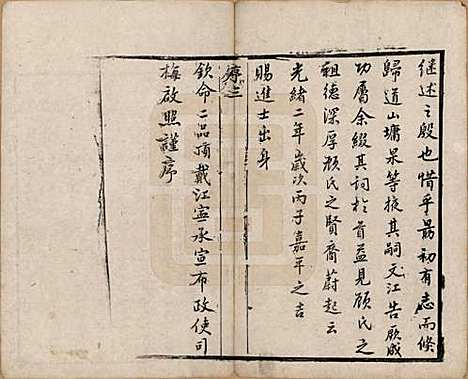 继述之殷也惜乎勗初有志而倏
歸道山墉杲等掖其嗣文江告厥成
功屬余綴其詞於首益見顧氏之
祖德深厚顧氏之賢裔蔚起云
光緒二年歲次丙子嘉平之吉
賜進士出身
序三
欽命二品頂戴江寧承宣布政使司
梅啟照謹序